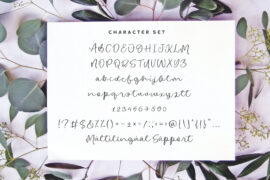 CHARACTER SET
ABCDEFGHIJKLM
NOPQRSTUVWXYZ
abcdefghijklm
nopqrstuvwxyz
1234567890
Multilingual Support